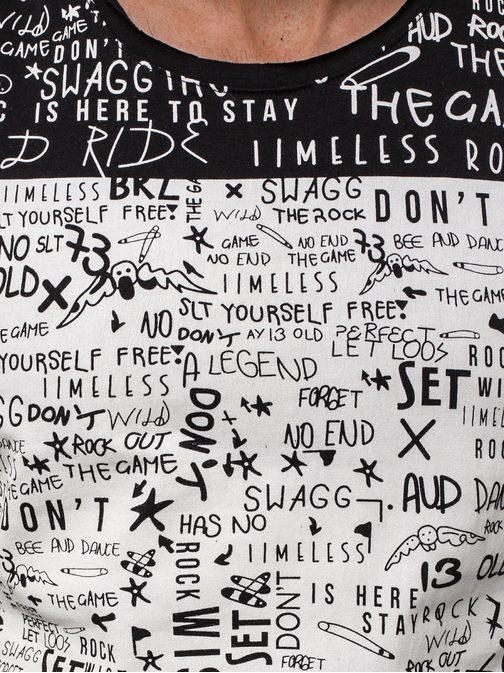 WILD
THE GAME
GAME DON'T
SWAGG
IS HERE TO STAY
D RIDE
ROCK
AUD
THE GA
IIMELESS RO
IIMELESS BRL
SWAGG
LT YOURSELF FREE!
WILD THE ROCK
DON'T
NO SLT 73
GAME NO END 73 BEE AND DANCE
NO END THE GAME
OLD X
IIMELESS
THE GAME
SLT YOURSELF FREE!
THE GAME
NO DON'T AY 13 OLD PERFECT
LET LOOS ROC
YOURSELF FREE!
A LEGEND
IIMELESS
FORGET
SET
GG DON'T WILD
DON'T
NO END X
ROCK OUT
THE GAME
SWAGG
AUD DANCE
DON'T
HAS NO
IIMELESS
BEE AUD DANCE
ROCK
13 OLD
OLD
THE GAME
SET
DON'T
IS HERE
STAY ROCK
WILD
PERFECT
LET LOOS ROCK
SWAGG
FORGET